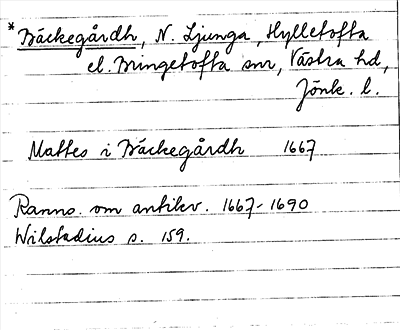 *Bäckegårdh, N. Ljunga, Hylletofta
el. Bringetofta snr, Västra hd,
Jönk. l.
Mattes i Bäckegårdh 1667
Ranns. om antikv. 1667-1690
Wilstadius s. 159.